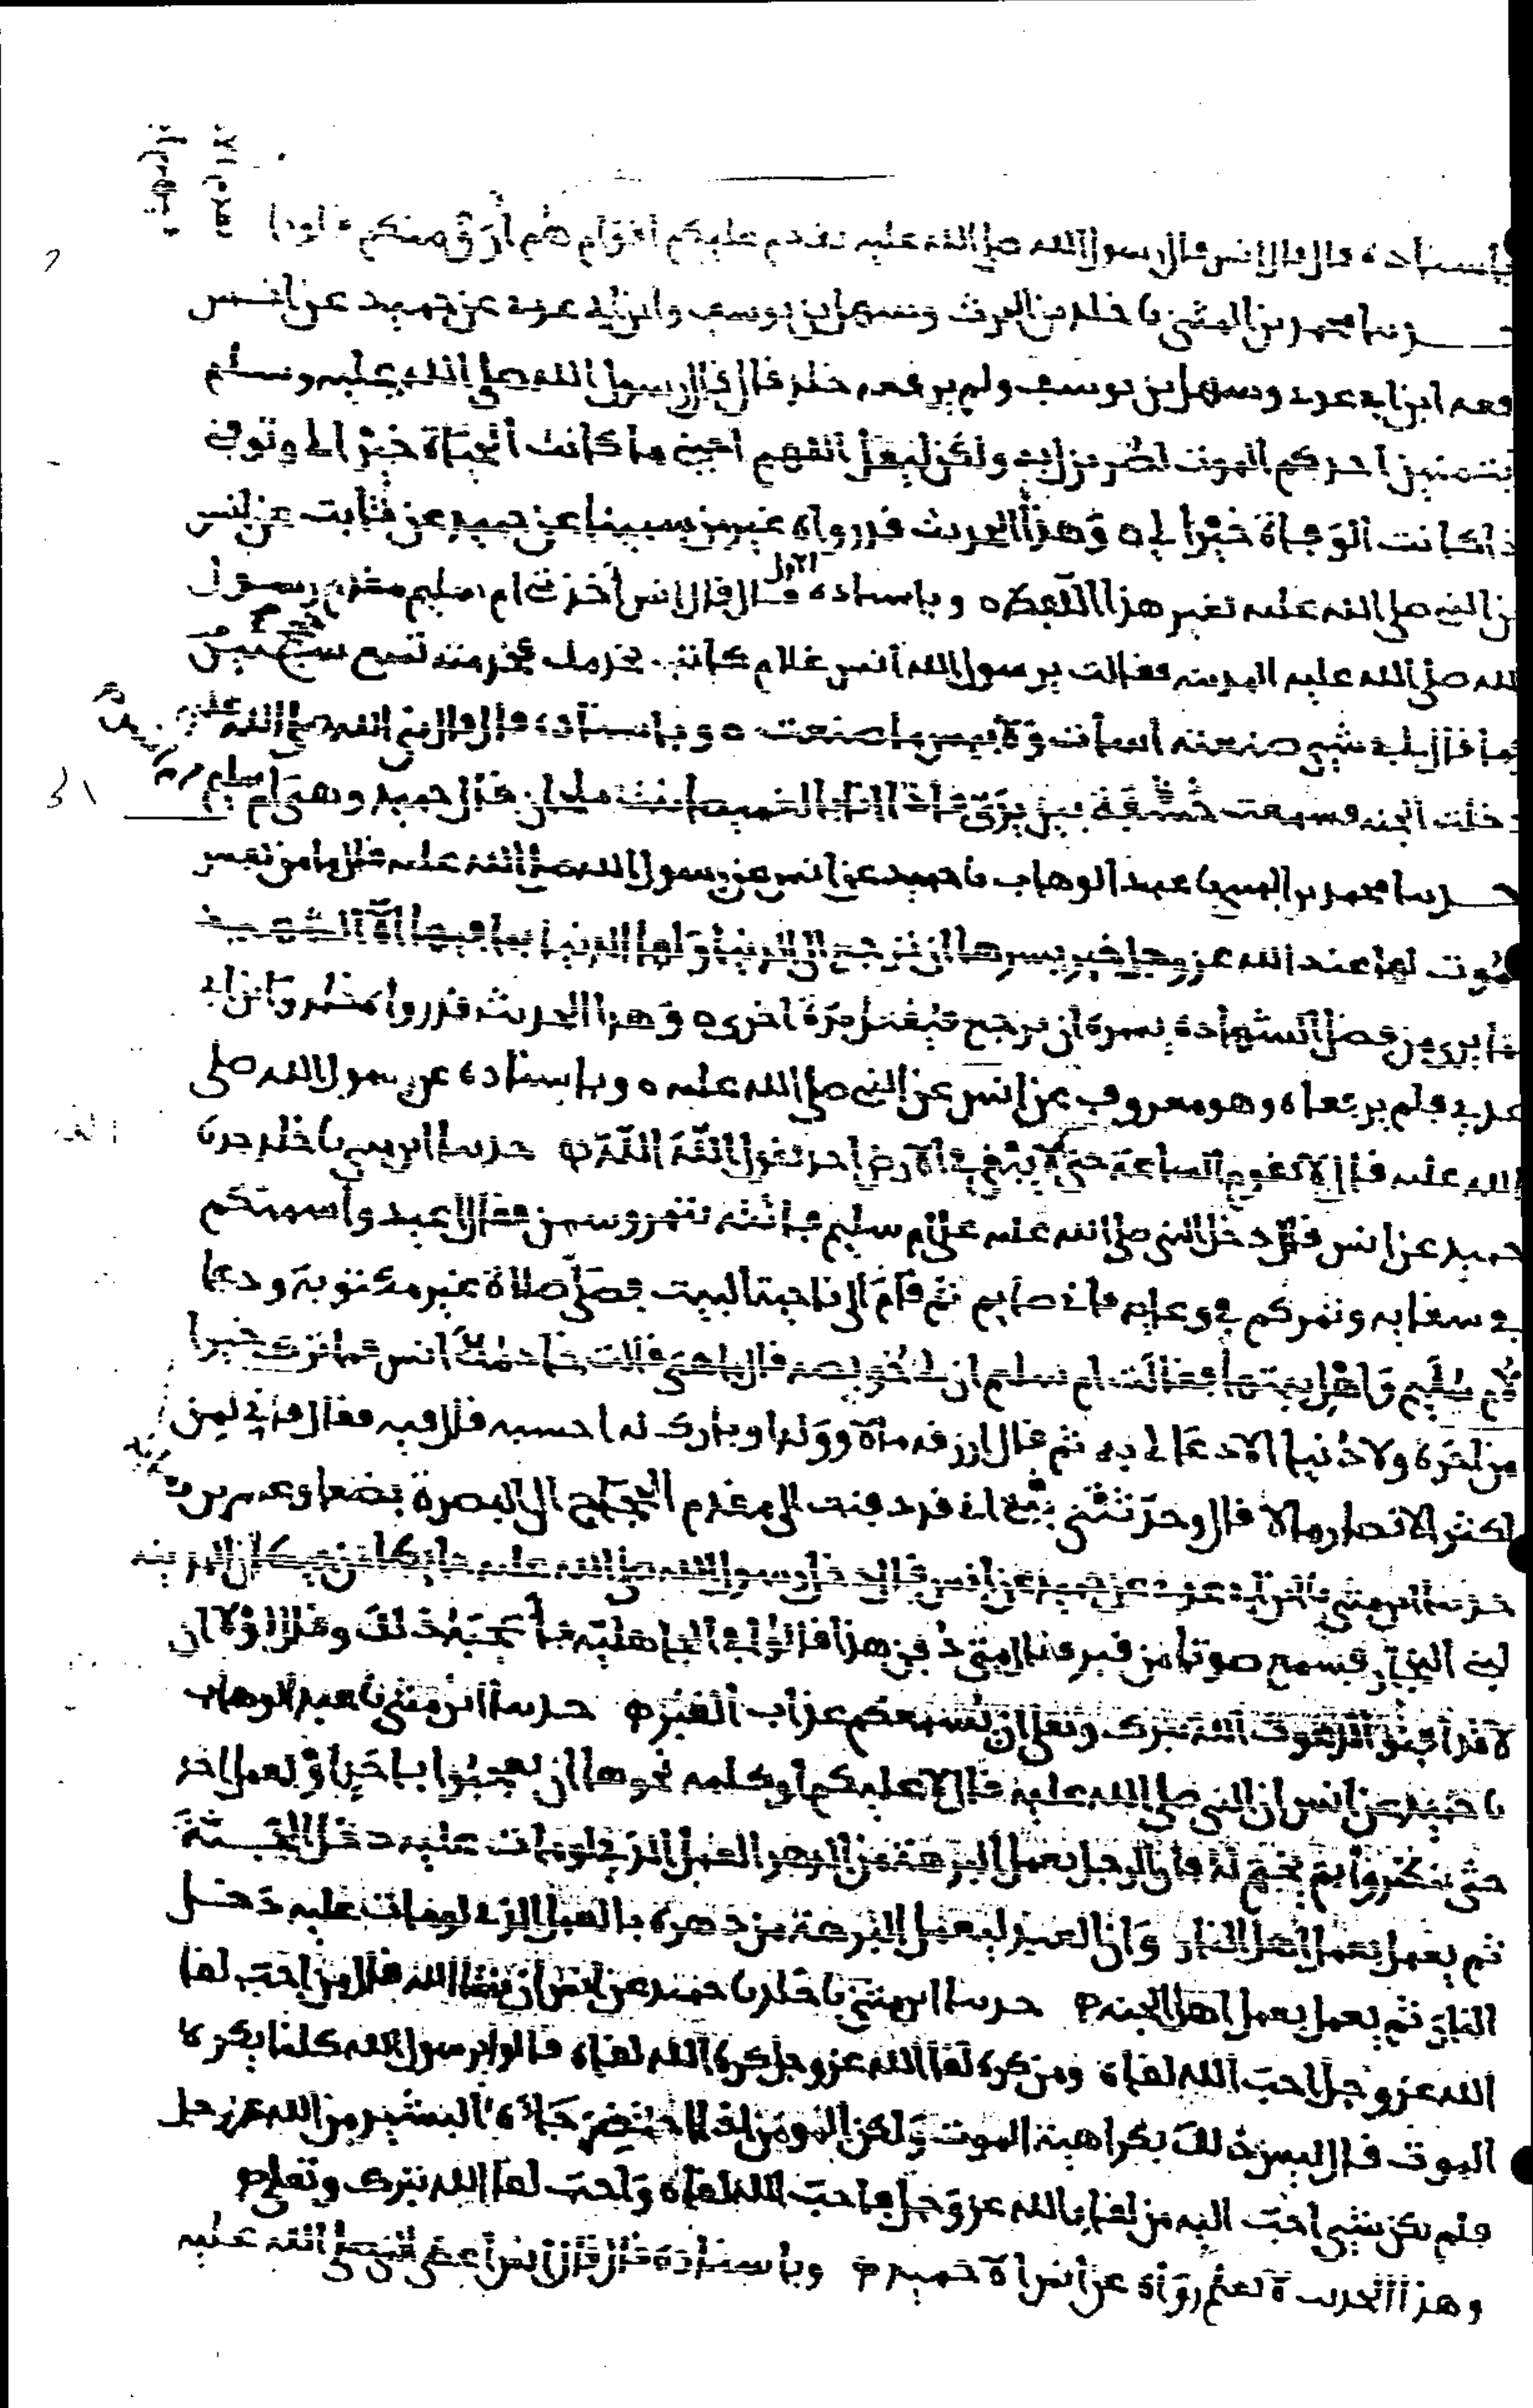 باسناده قال قال انس قال رسول الله صلى الله عليه تقدم عليكم اقوام هم أرق منكم
حدثنا محمد بن المثنى نا خلد بن الحرث وسهل بن يوسف وابن ابي عدي عن حميد عن انس
رفعه ابن ابي عدي وسهل بن يوسف ولم يرفعه خلد قال قال رسول الله صلى الله عليه وسلم
يتمنين احدكم الموت لضر نزل به ولكن ليقل اللهم احيني ما كانت الحياة خيرا لي وتوفني
اذا كانت الوفاة خيرا لي ه وهذا الحديث قد رواه غير من سمينا عن حميد عن ثابت عن انس
عن النبي صلى الله عليه بغير هذا اللفظ ه وباسناده الاول قال قال انس أخذتني ام سليم مقدم رسول
الله صلى الله عليه المدينة فقالت يرسول الله انس غلام كاتب يخدمك فخدمته تسع سنين
فما قال لي لشي صنعته اسأت ولا بيس ما صنعت ه وباسناده قال قال نبي الله صلى الله عليه
دخلت الجنه فسمعت خشفة بين يدي فاذا انا بالغميصا بنت ملحان قال حميد وهي ام سليم
حدثنا محمد بن المثنى نا عبد الوهاب نا حميد عن انس عن رسول الله صلى الله عليه قال ما من نفس
تموت لها عند الله عز وجل خير يسرها ان ترجع الى الدنيا ولها الدنيا بما فيها الا الشهيد
لما يرى من فضل الشهادة يسره ان يرجع فيقتل مرة اخرى ه وهذا الحديث قد رواه خلد وابن ابي
عدي فلم يرفعاه وهو معروف عن انس عن النبي صلى الله عليه ه وباسناده عن رسول الله صلى
الله عليه قال لا تقوم الساعة حتى لا يبقى في الارض احد يقول الله الله ه حدثنا ابن مثنى نا خلد
حميد عن انس قال دخل النبي صلى الله عليه على ام سليم فاتته بتمر وسمن فقال اعيدوا سمنكم
في سقايه وتمركم في وعايه فاني صايم ثم قام الى ناحية البيت فصلى صلاة غير مكتوبة ودعا
لام سليم واهل بيتها فقالت ام سليم ان لي خويصه قال ما هي قالت خادمك انس فما ترك خيرا
من اخره ولا دنيا الا دعا لي به ثم قال ارزقه مالا وولدا وبارك له احسبه قال فيه فقال فاني لمن
اكثر الانصار مالا قال وحدثتني اني قد دفنت الى مقدم الحجاج الى البصرة بضعا وعشرين
حدثنا ابن مثنى نا ابن ابي عدي عن حميد عن انس قال دخل رسول الله صلى الله عليه حايطا من حيطان المدينه
لبني النجار فسمع صوتا من قبر فقال متى دفن هذا قالوا في الجاهليه فاعجبه ذلك وقال لولا ان
لا تدافنوا لدعوت الله تبرك وتعلى ان يسمعكم عذاب القبر ه حدثنا ابن مثنى نا عبد الوهاب
نا حميد عن انس ان النبي صلى الله عليه قال لا عليكم او كلمه نحوها ان تعجبوا باحد او لعمل احد
حتى تنظروا بم يختم له فان الرجل يعمل البرهة من الدهر العمل الذي لو مات عليه دخل الجنة
ثم يعمل بعمل اهل النار وان العبد ليعمل البرهة من دهره بالعمل الذي لو مات عليه دخل
النار ثم يعمل بعمل اهل الجنه ه حدثنا ابن مثنى نا خلد نا حميد عن انس ان نبي الله قال من احب لقا
الله عز وجل احب الله لقاه ومن كره لقا الله عز وجل كره الله لقاه قالوا يرسول الله كلنا يكره
الموت قال ليس ذلك بكراهية الموت ولكن المومن اذا احتضر جاه البشير من الله عز وجل
فلم يكن شي احب اليه من لقا الله عز وجل فاحب الله لقاه واحب لقا الله تبرك وتعلى ه
وهذا الحديث لا نعلم رواه عن انس الا حميد ه وباسناده قال قال انس اعطى النبي صلى الله عليه